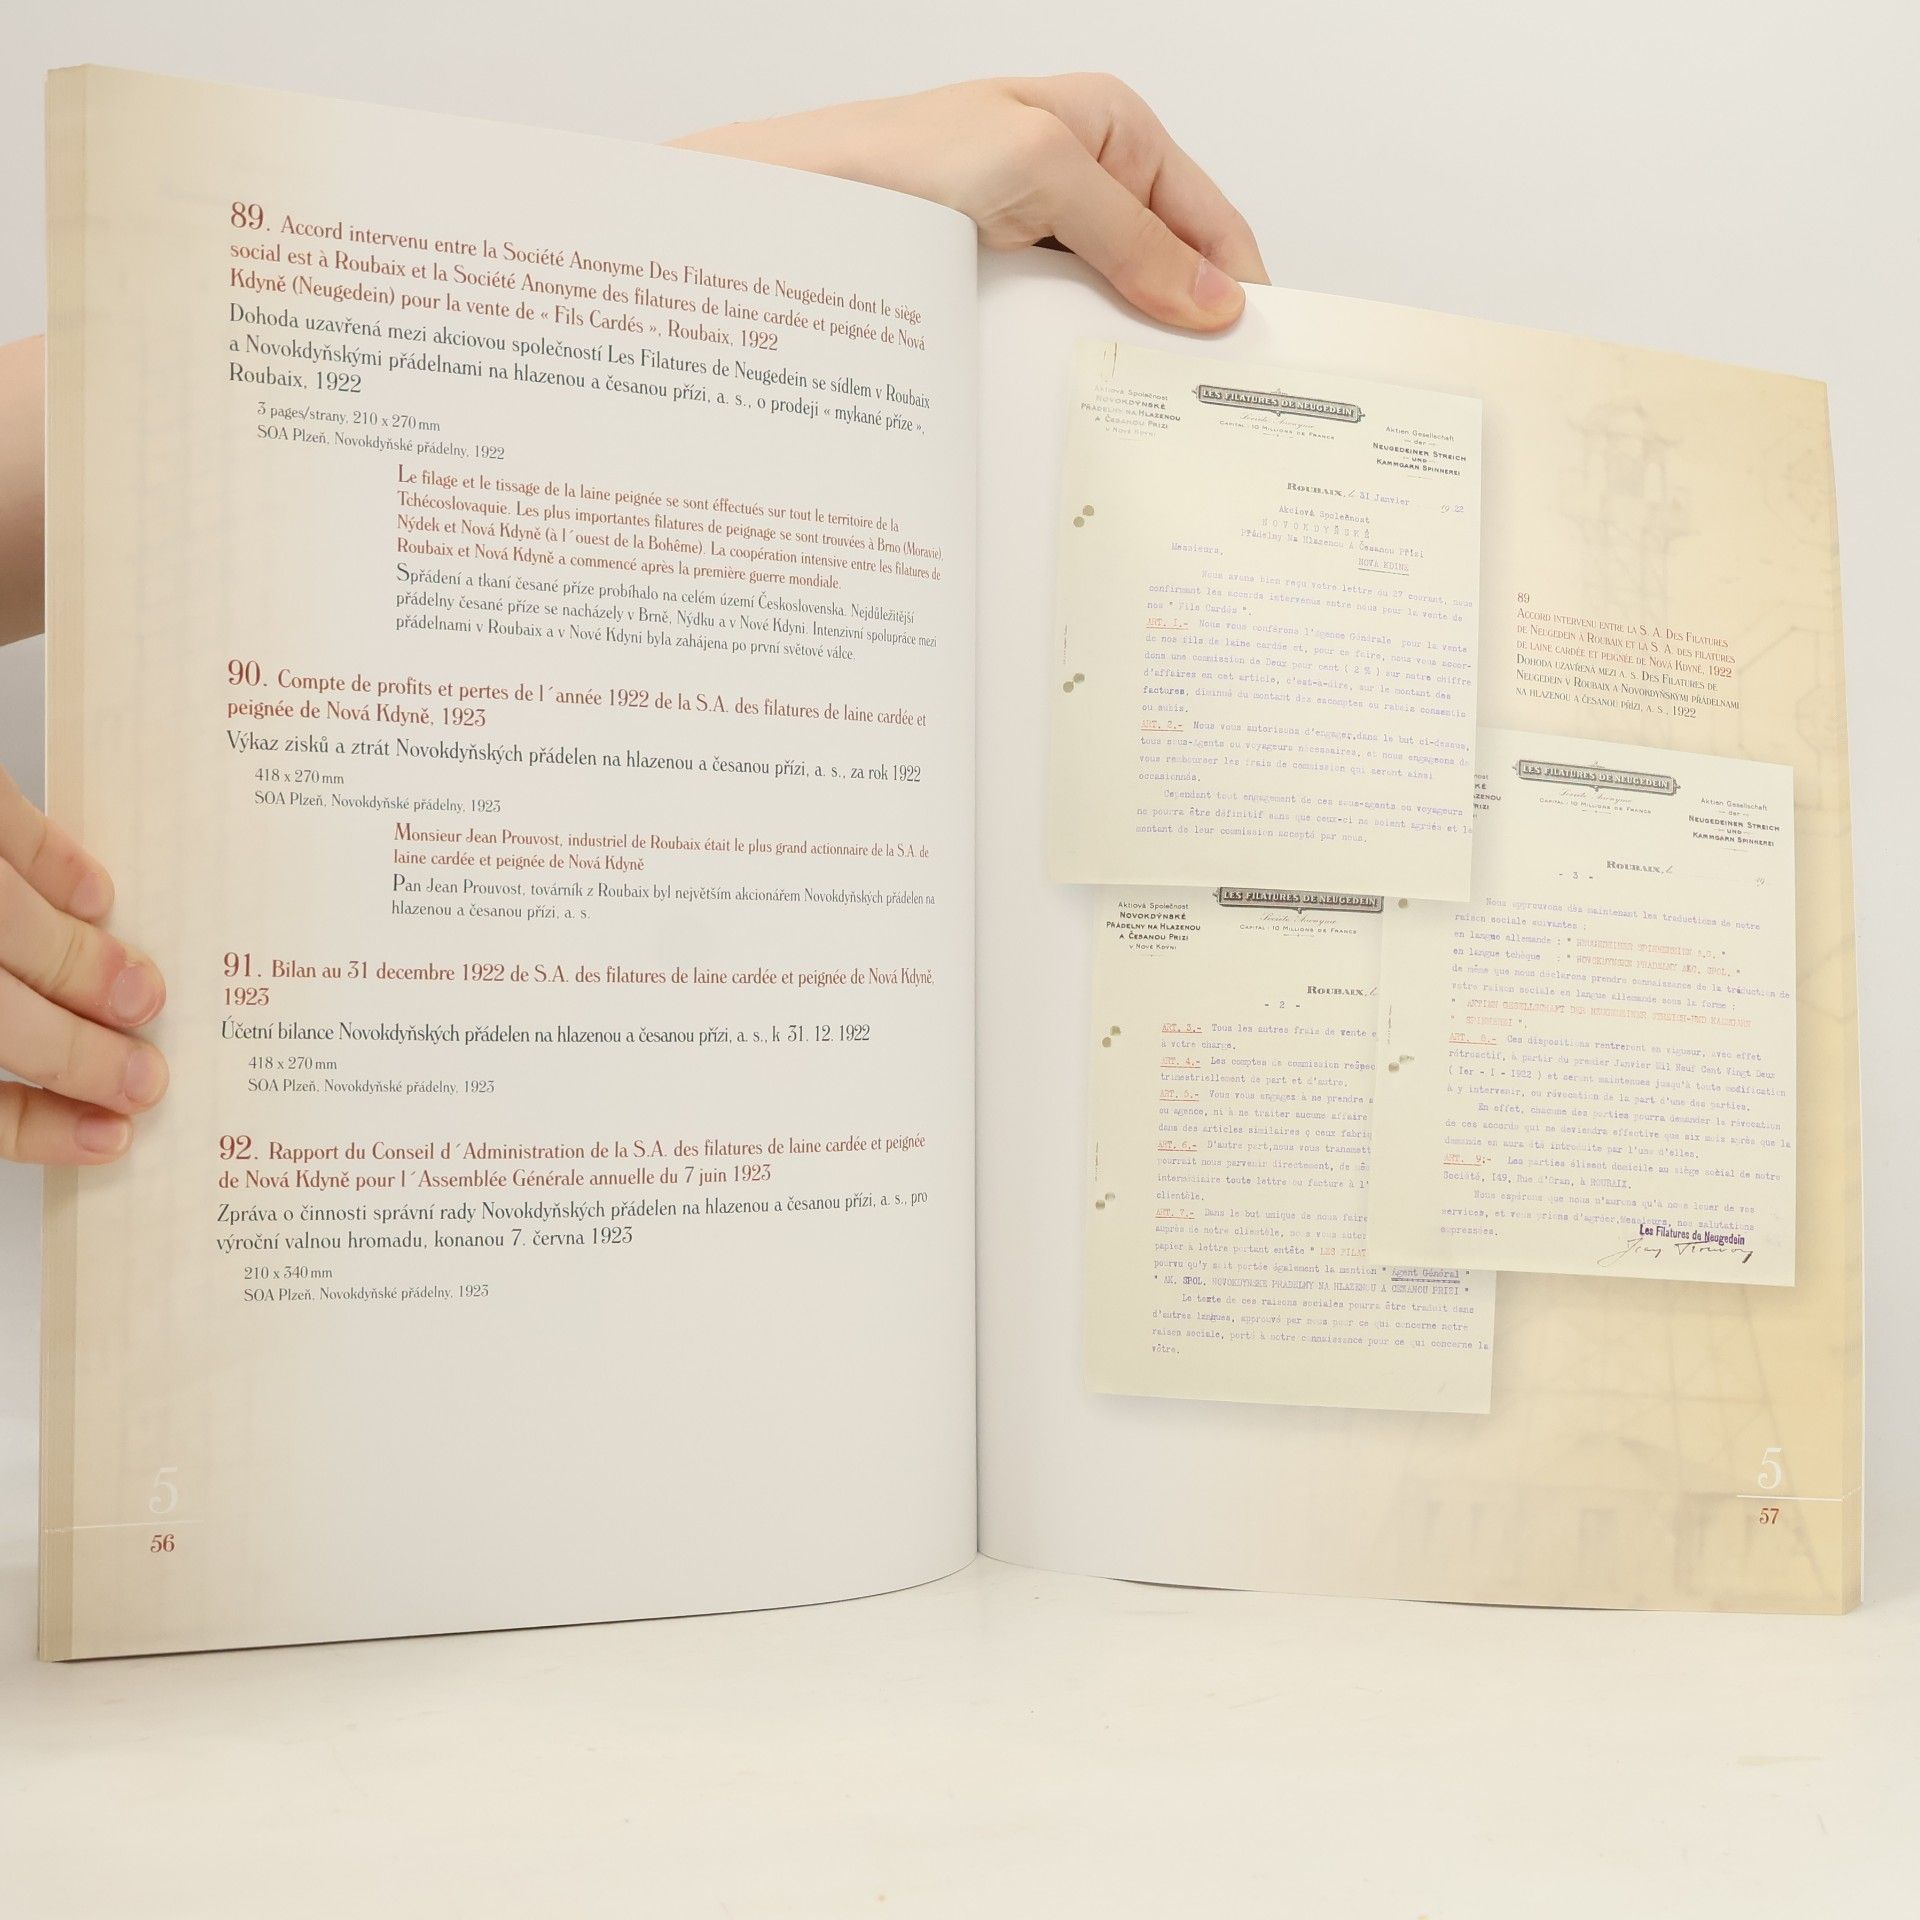 89. Accord intervenu entre la Société Anonyme Des Filatures de Neugedein dont le siège
social est à Roubaix et la Société Anonyme des filatures de laine cardée et peignée de Nová
Kdyně (Neugedein) pour la vente de « Fils Cardés », Roubaix, 1922
Dohoda uzavřená mezi akciovou společností Les Filatures de Neugedein se sídlem v Roubaix
a Novokdyňskými přádelnami na hlazenou a česanou přízi, a. s., o prodeji « mykané příze »,
Roubaix, 1922
3 pages/strany, 210 x 270 mm
SOA Plzeň, Novokdyňské přádelny, 1922
Le filage et le tissage de la laine peignée se sont éffectués sur tout le territoire de la
Tchécoslovaquie. Les plus importantes filatures de peignage se sont trouvées à Brno (Moravie),
Nýdek et Nová Kdyně (à l´ouest de la Bohême). La coopération intensive entre les filatures de
Roubaix et Nová Kdyně a commencé après la première guerre mondiale.
Spřádení a tkaní česané příze probíhalo na celém území Československa. Nejdůležitější
přádelny česané příze se nacházely v Brně, Nýdku a v Nové Kdyni. Intenzivní spolupráce mezi
přádelnami v Roubaix a v Nové Kdyni byla zahájena po první světové válce.
90. Compte de profits et pertes de l´année 1922 de la S.A. des filatures de laine cardée et
peignée de Nová Kdyně, 1923
Výkaz zisků a ztrát Novokdyňských přádelen na hlazenou a česanou přízi, a. s., za rok 1922
418 x 270 mm
SOA Plzeň, Novokdyňské přádelny, 1923
Monsieur Jean Prouvost, industriel de Roubaix était le plus grand actionnaire de la S.A. de
laine cardée et peignée de Nová Kdyně
Pan Jean Prouvost, továrník z Roubaix byl největším akcionářem Novokdyňských přádelen na
hlazenou a česanou přízi, a. s.
91. Bilan au 31 decembre 1922 de S.A. des filatures de laine cardée et peignée de Nová Kdyně,
1923
Účetní bilance Novokdyňských přádelen na hlazenou a česanou přízi, a. s., k 31. 12. 1922
418 x 270 mm
SOA Plzeň, Novokdyňské přádelny, 1923
92. Rapport du Conseil d´Administration de la S.A. des filatures de laine cardée et peignée
de Nová Kdyně pour l´Assemblée Générale annuelle du 7 juin 1923
Zpráva o činnosti správní rady Novokdyňských přádelen na hlazenou a česanou přízi, a. s., pro
výroční valnou hromadu, konanou 7. června 1923
210 x 340 mm
SOA Plzeň, Novokdyňské přádelny, 1923
5
56
Aktiová Společnost
NOVOKDÝNSKÉ
PŘÁDELNY NA HLAZENOU
A ČESANOU PRIZI
V NOVÉ KDYNI
LES FILATURES DE NEUGEDEIN
Société Anonyme
CAPITAL : 10 MILLIONS DE FRANCS
Aktien Gesellschaft
der
NEUGEDEINER STREICH
UND
KAMMGARN SPINNEREI
ROUBAIX, le 31 Janvier 1922
Akciová Společnost
NOVOKDYŇSKÉ
Přádelny Na Hlazenou A Česanou Přízi
NOVA KDINE
Messieurs,
Nous avons bien reçu votre lettre du 27 courant, nous
confirmant les accords intervenus entre nous pour la vente de
nos " Fils Cardés ".
ART. 1.- Nous vous conférons l'agence Générale pour la vente
de nos fils de laine cardée et, pour ce faire, nous vous accor-
dons une commission de Deux pour cent ( 2 % ) sur notre chiffre
d'affaires en cet article, c'est-à-dire, sur le montant des
factures, diminué du montant des escomptes ou rabais consentis
ou subis.
ART. 2.- Nous vous autorisons d'engager, dans le but ci-dessus,
tous sous-Agents ou voyageurs nécessaires, et nous engageons de
vous rembourser les frais de commission qui seront ainsi
occasionnés.
Cependant tout engagement de ces sous-agents ou voyageurs
ne pourra être définitif sans que ceux-ci ne soient agréés et le
montant de leur commission accepté par nous.
89
ACCORD INTERVENU ENTRE LA S. A. DES FILATURES
DE NEUGEDEIN À ROUBAIX ET LA S. A. DES FILATURES
DE LAINE CARDÉE ET PEIGNÉE DE NOVÁ KDYNĚ, 1922
DOHODA UZAVŘENÁ MEZI A. S. DES FILATURES DE
NEUGEDEIN V ROUBAIX A NOVOKDYŇSKÝMI PŘÁDELNAMI
NA HLAZENOU A ČESANOU PŘÍZI, A. S., 1922
Aktiová Společnost
NOVOKDÝNSKÉ
PŘÁDELNY NA HLAZENOU
A ČESANOU PRIZI
V NOVÉ KDYNI
LES FILATURES DE NEUGEDEIN
Société Anonyme
CAPITAL : 10 MILLIONS DE FRANCS
ROUBAIX, le
- 2 -
ART. 3.- Tous les autres frais de vente
à votre charge.
ART. 4.- Les comptes de commission
trimestriellement de part et d'autre.
ART. 5.- Vous vous engagez à ne prendre
ou agence, ni à ne traiter aucune affaire
dans des articles similaires
ART. 6.- D'autre part, nous vous
pourrait nous parvenir directement, de
intermédiaire toute lettre ou facture à
clientèle.
ART. 7.- Dans le but unique de vous faire
auprès de notre clientèle, nous vous
papier à lettre portant entête " LES
pourvu qu'y soit portée également la mention " Agent Général "
" AK. SPOL. NOVOKDYNSKE PRADELNY NA HLAZENOU A CESANOU PRIZI "
Le texte de ces raisons sociales pourra être traduit dans
d'autres langues, approuvé par nous pour ce qui concerne notre
raison sociale, porté à notre connaissance pour ce qui concerne la
vôtre.
LES FILATURES DE NEUGEDEIN
Société Anonyme
CAPITAL : 10 MILLIONS DE FRANCS
Aktien Gesellschaft
der
NEUGEDEINER STREICH
UND
KAMMGARN SPINNEREI
ROUBAIX, le 19
- 3 -
Nous approuvons dès maintenant les traductions de notre
raison sociale suivantes :
en langue allemande : " NEUGEDEINER SPINNEREIEN A.G. "
en langue tchèque : " NOVOKDYNSKE PRADELNY AKC. SPOL. "
de même que nous déclarons prendre connaissance de la traduction de
votre raison sociale en langue allemande sous la forme :
" AKTIEN GESELLSCHAFT DER NEUGEDEINER STREICH-UND KAMMGARN
" SPINNEREI ".
ART. 8.- Ces dispositions rentreront en vigueur, avec effet
rétroactif, à partir du premier Janvier Mil Neuf Cent Vingt Deux
( 1er - I - 1922 ) et seront maintenues jusqu'à toute modification
à y intervenir, ou révocation de la part d'une des parties.
En effet, chacune des parties pourra demander la révocation
de ces accords qui ne deviendra effective que six mois après que la
demande en aura été introduite par l'une d'elles.
ART. 9.- Les parties élisent domicile au siège social de notre
Société, 149, Rue d'Oran, à ROUBAIX.
Nous espérons que nous n'aurons qu'à nous louer de vos
services, et vous prions d'agréer, Messieurs, nos salutations
empressées.
Les Filatures de Neugedein
5
57